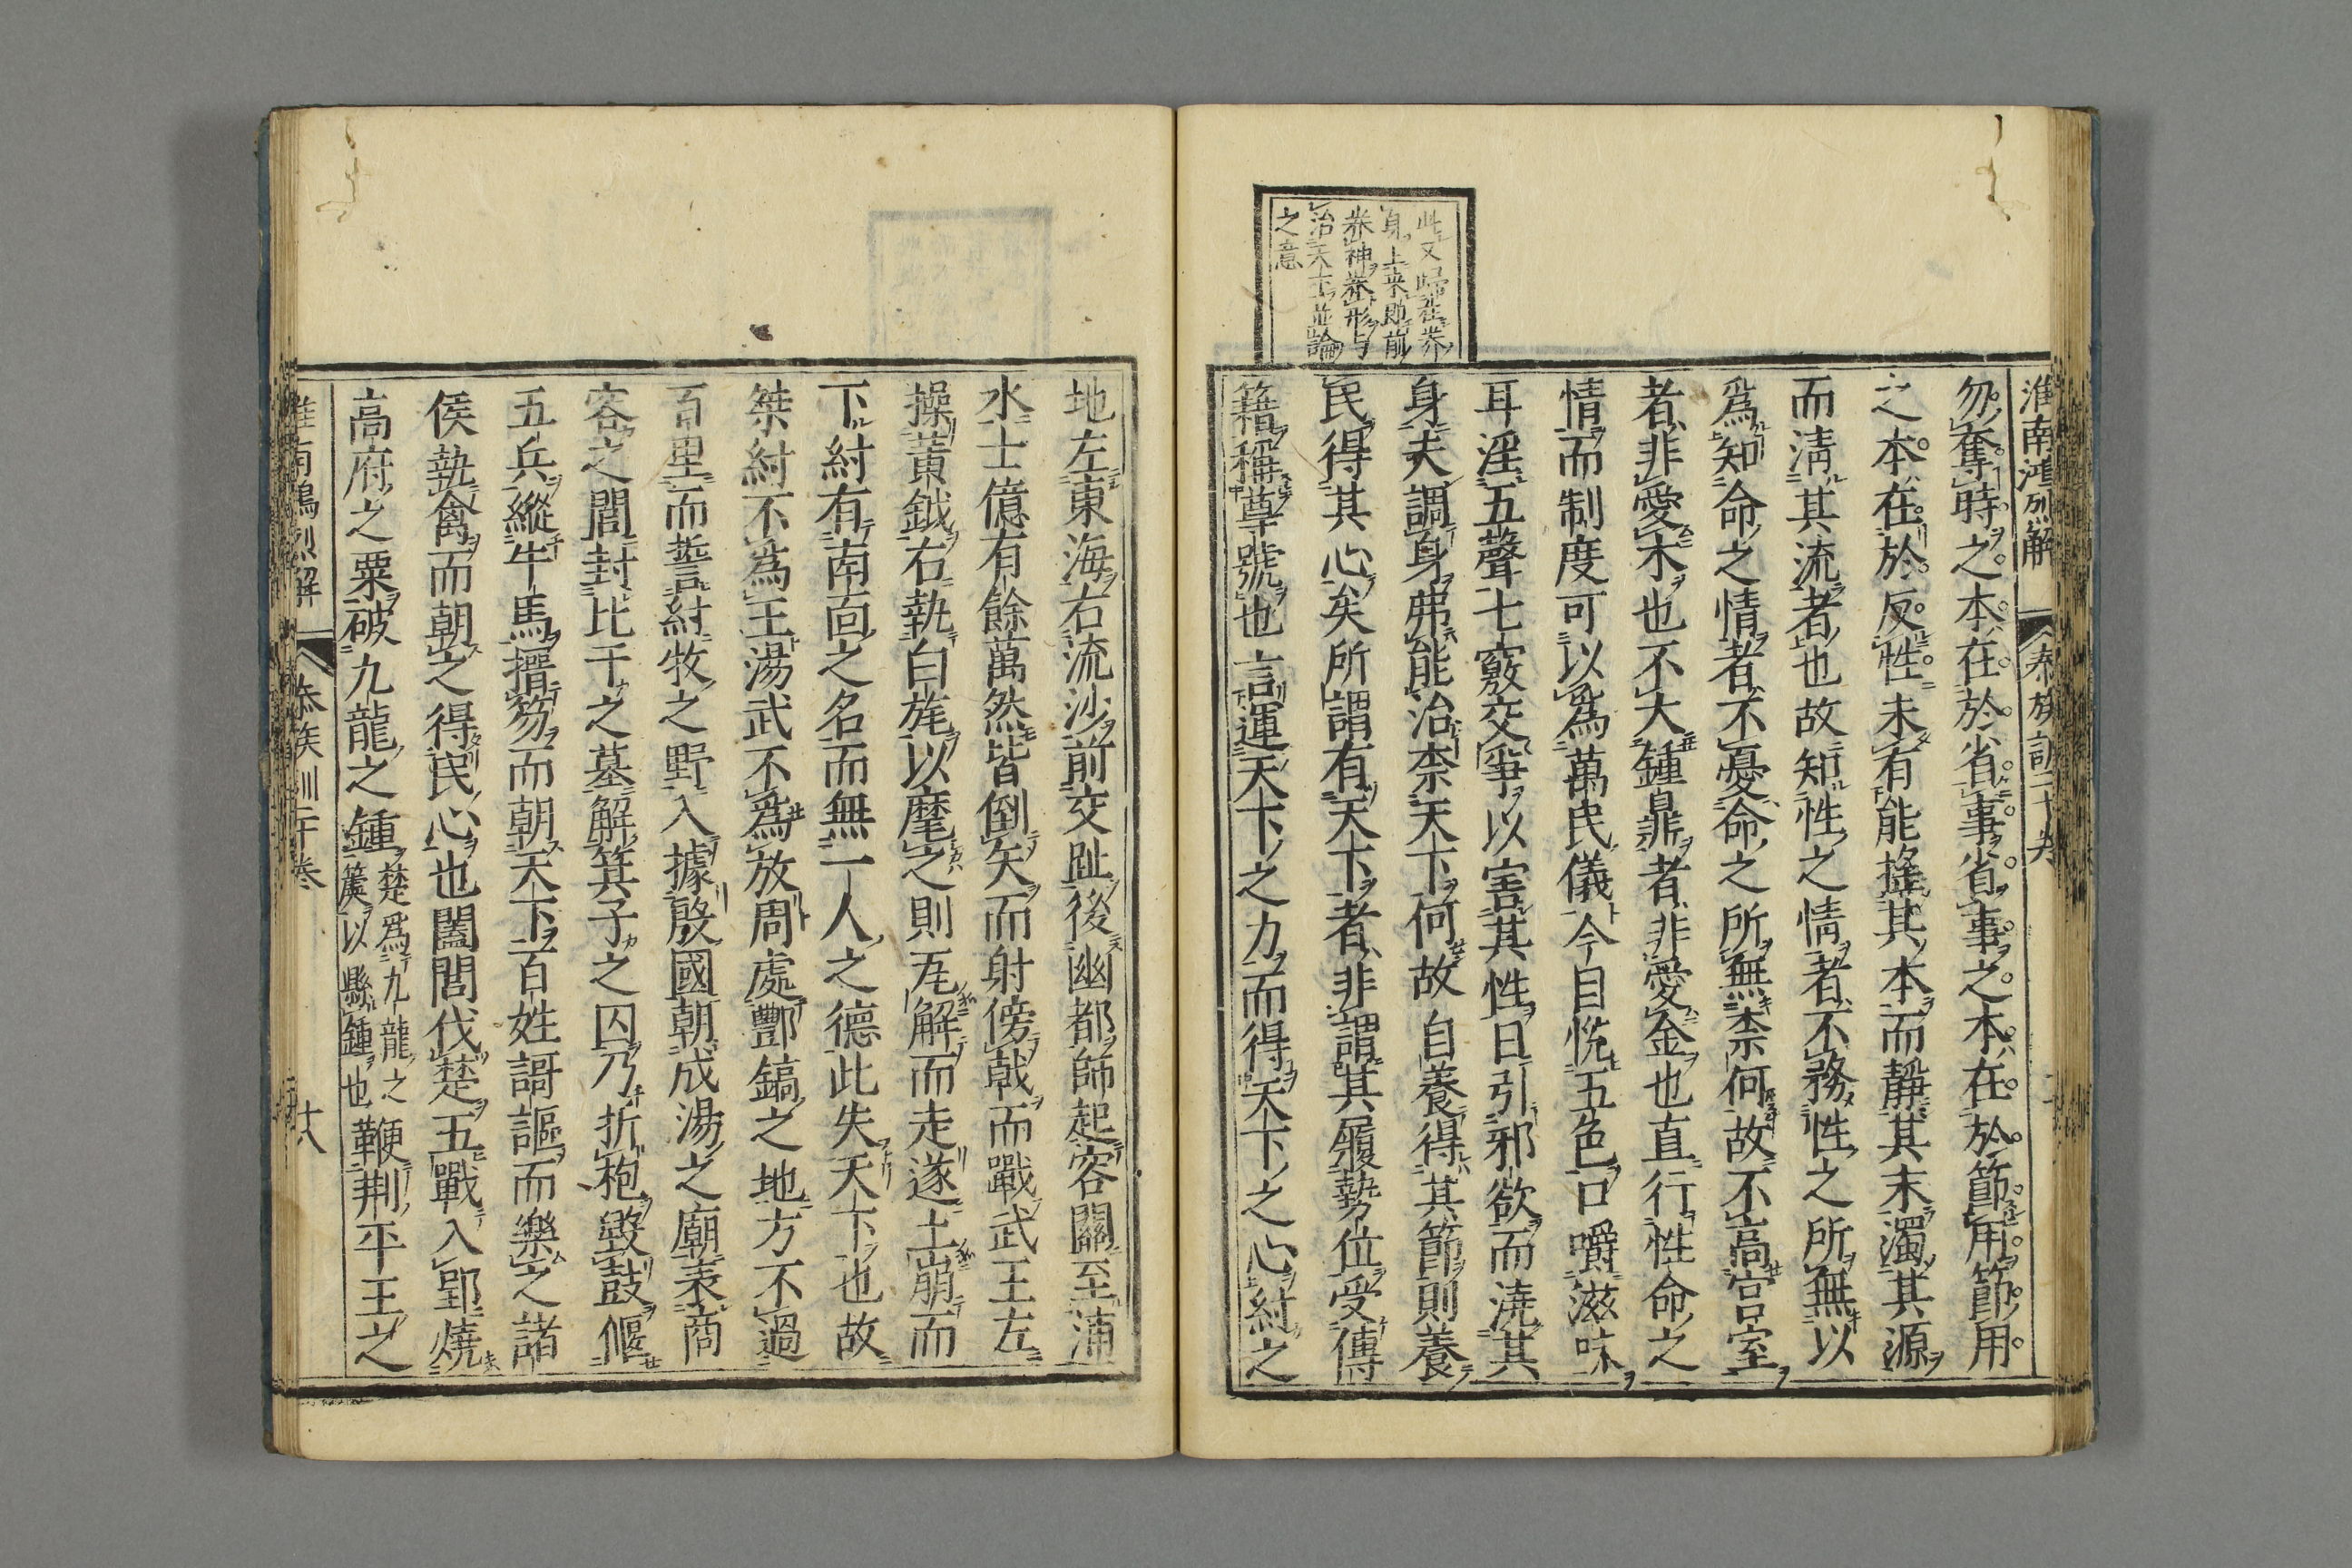 淮南鴻烈解
泰族訓二十卷
此又歸在養
身上来即前
養神養形与
治天下並論
之意
勿奪時之本在於省事省事之本在於節用節用
之本在於反性未有能搖其本而靜其末濁其源
而清其流者也故知性之情者不務性之所無以
爲知命之情者不憂命之所無柰何故不高宮室
者非愛木也不大鍾鼎者非愛金也直行性命之
情而制度可以爲萬民儀今目悅五色口嚼滋味
耳淫五聲七竅交爭以害其性日引邪欲而澆其
身夫調身弗能治柰天下何故自養得其節則養
民得其心矣所謂有天下者非謂其履勢位受傳
籍稱尊號也言運天下之力而得天下之心紂之
地左東海右流沙前交趾後幽都師起容關至浦
水士億有餘萬然皆倒矢而射傍戟而戰武王左
操黃鉞右執白旄以麾之則瓦解而走遂土崩而
下紂有南面之名而無一人之德此失天下也故
桀紂不爲王湯武不爲放周處酆鎬之地方不過
百里而誓紂牧之野入據殷國朝成湯之廟表商
容之閭封比干之墓解箕子之囚乃折枹毀鼓偃
五兵縱牛馬搢笏而朝天下百姓謌謳而樂之諸
侯執禽而朝之得民心也闔閭伐楚五戰入郢燒
高府之粟破九龍之鍾楚爲九龍之簴以縣鍾也鞭荆平王之
淮南鴻烈解
泰族訓二十卷
十八